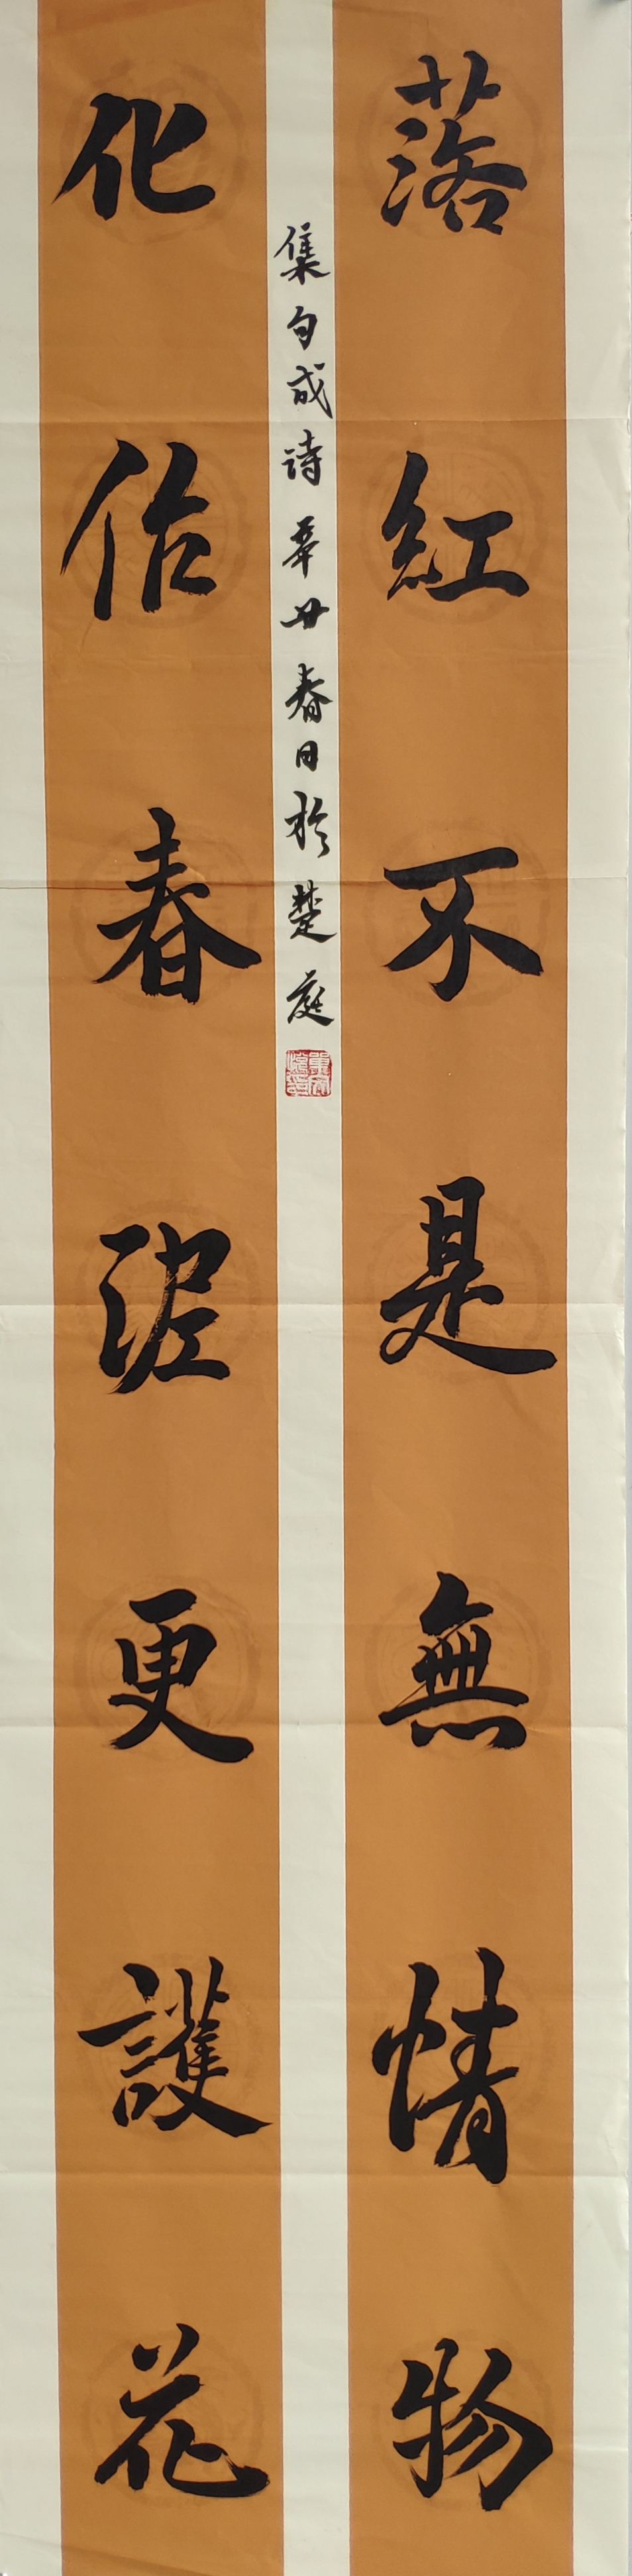 落紅不是無情物
化作春泥更護花
集句成詩辛丑春日於楚庭